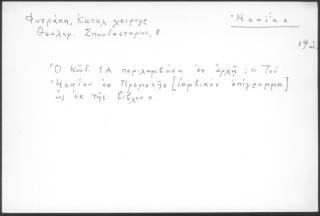 Φυτράκη, Καταλ. χειρογρ.
Θεολογ. Σπουδαστηρίου, 8
Ἡσαΐας
19 αἰ.
Ὁ Κῶδ. 1Α περιλαμβάνει ἐν ἀρχῇ: "Τοῦ
Ἡσαΐου ἐκ [ἰαμβικὸν ἐπίγραμμα]
ὡς ἐκ τῆς βίβλου".